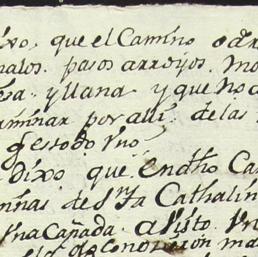 ixo, que el Camino
malos. pasos arroyos. mo
esa. y llana y que no a
aminar por aui. de las
q̃ es todo Vno
dixo que en dho Ca
mnas de Sta Cathalin
Vna Cañada. a Visto Vn
de conocicion ma